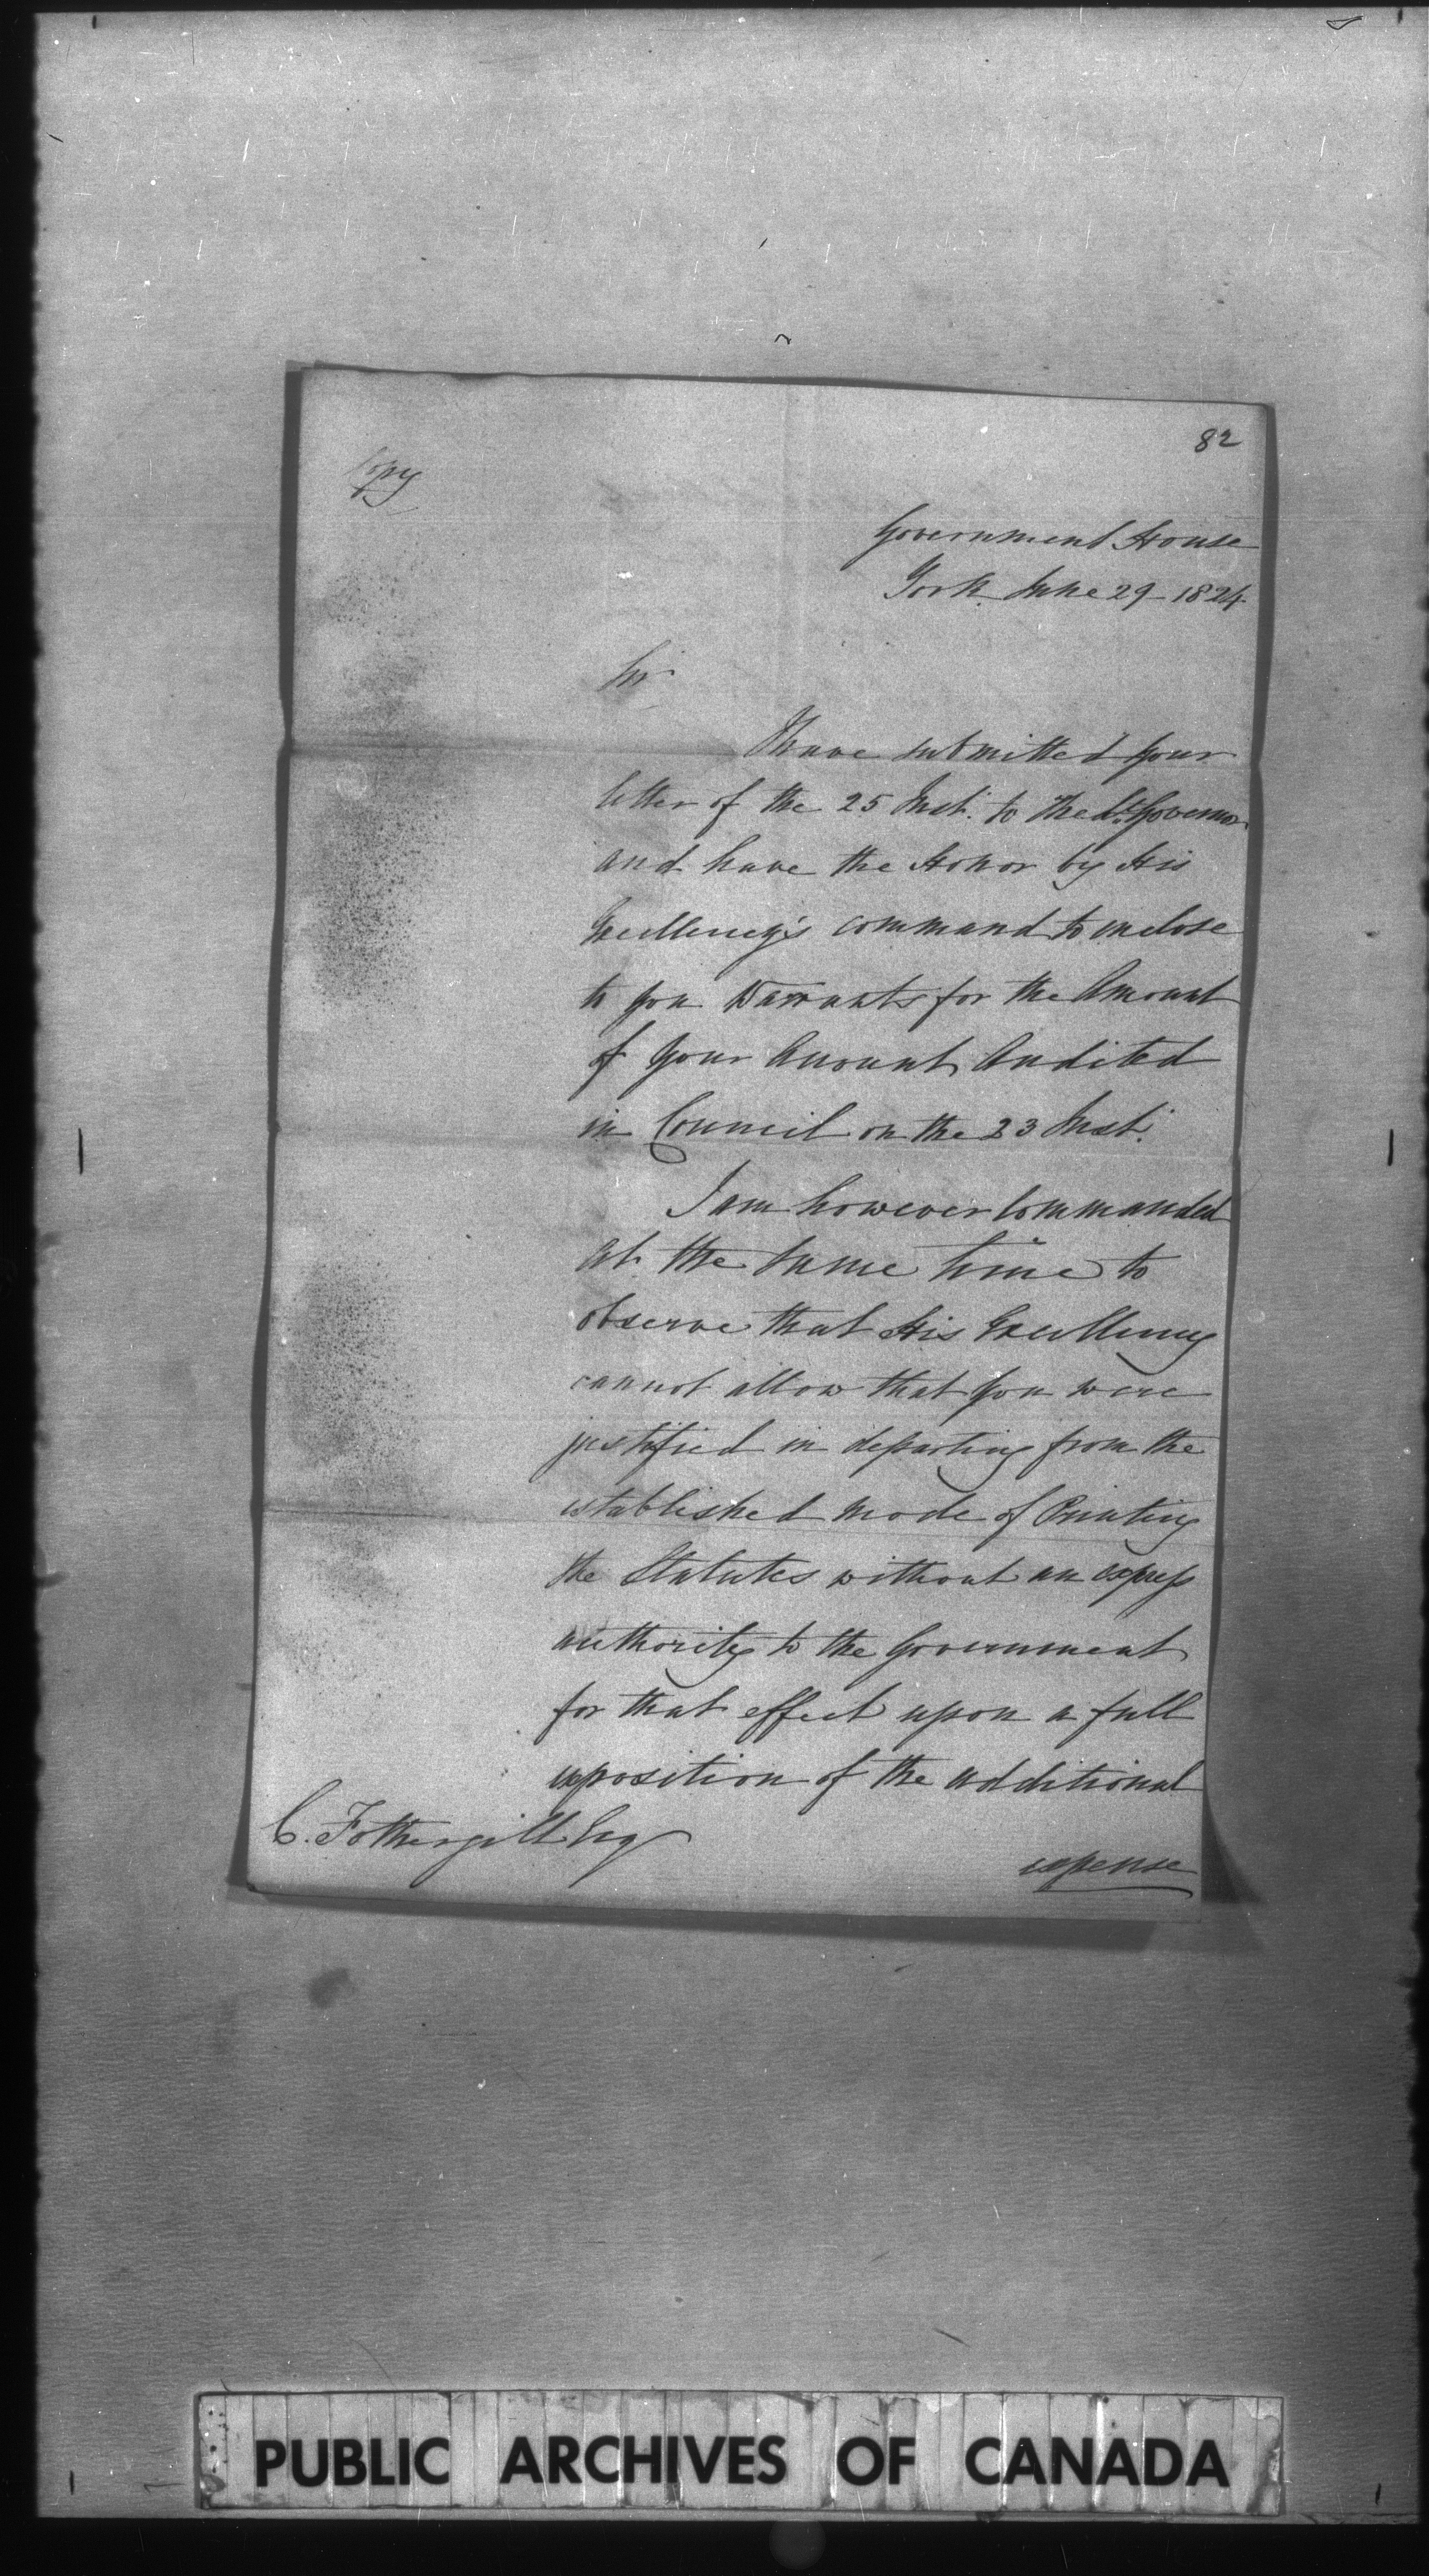 82
Copy
Government House
York June 29 - 1824
Sir
I have submitted your
letter of the 25 Inst. to the Lt. Governor
and have the Honor by His
Excellency's command to inclose
to you Warrants for the Amount
of your Account Audited
in Council on the 23 Inst.
I am however Commanded
at the same time to
observe that His Excellency
cannot allow that you were
justified in departing from the
established mode of Printing
the Statutes without an express
authority to the Government
for that effect upon a full
exposition of the additional
C. Fothergill Esq
expense
PUBLIC ARCHIVES OF CANADA